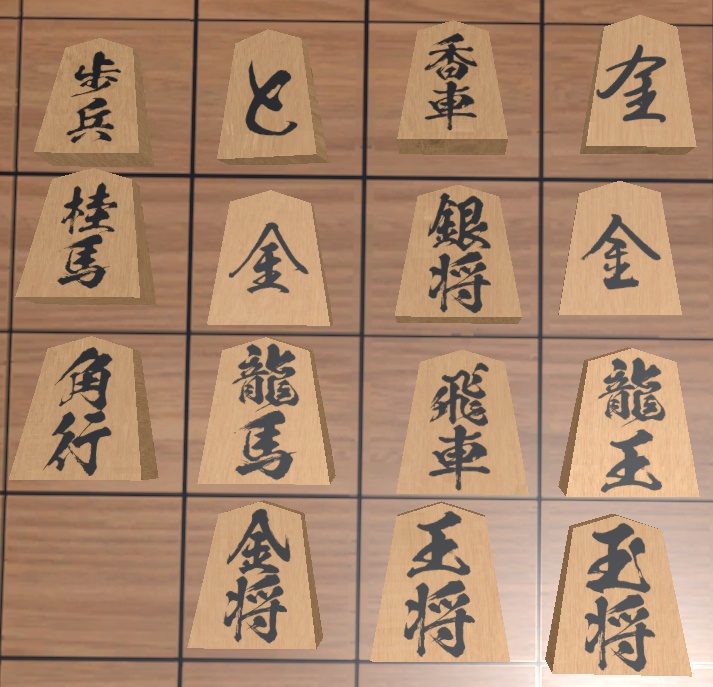 歩兵
と
香車
金
桂馬
金
銀将
金
角行
龍馬
飛車
龍王
金将
王将
玉将